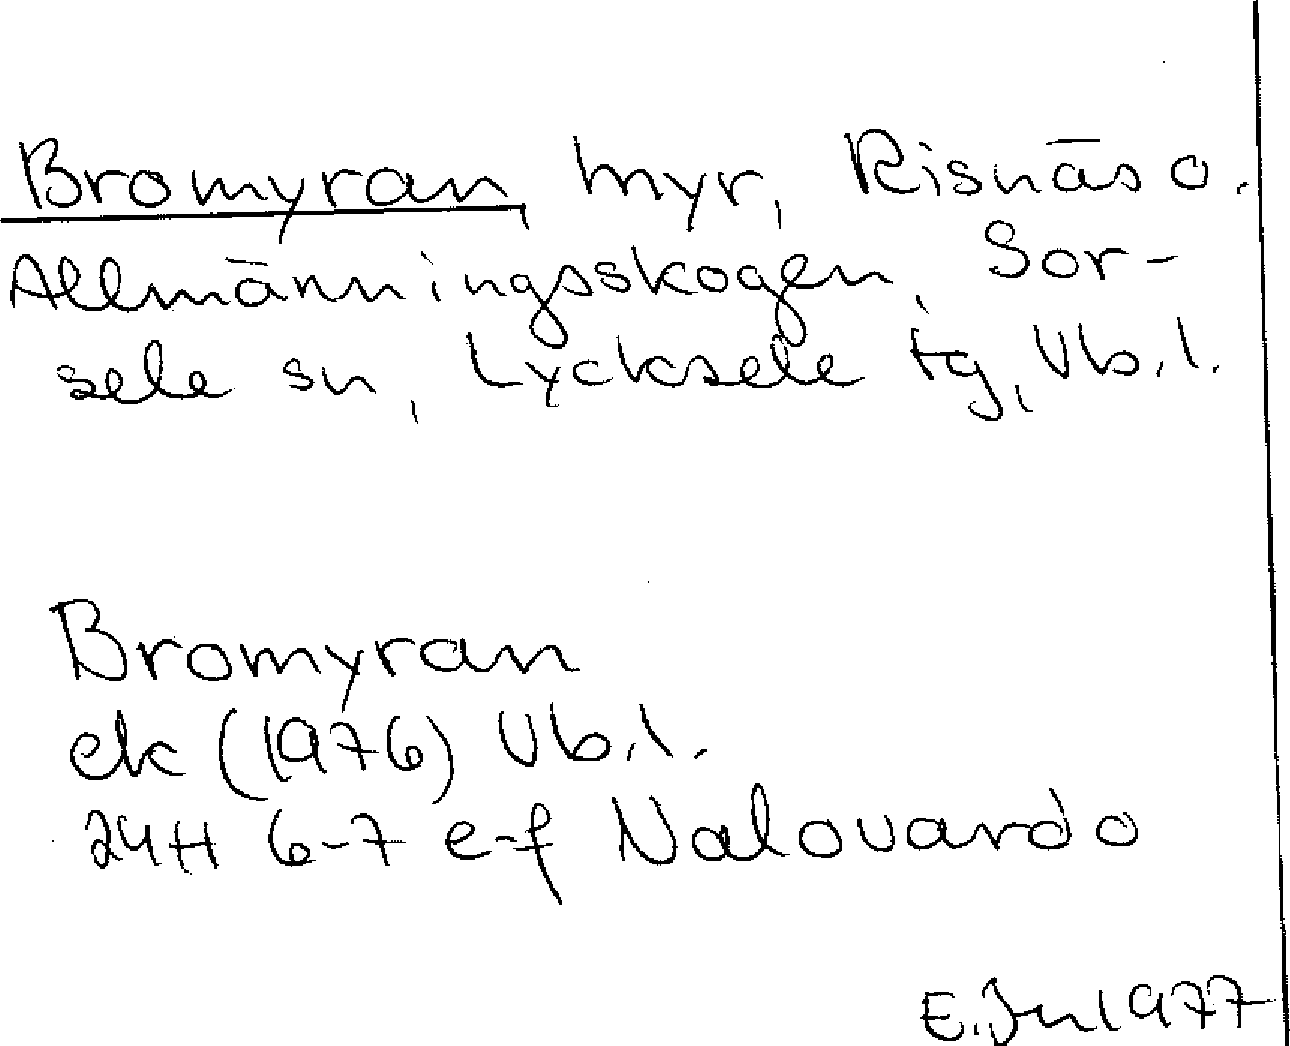 Bromyran, myr, Risnäs o.
Allmänningsskogen, Sor-
sele sn, Lycksele tg, Vb.l.
Bromyran
ek (1976) Vb.l.
24H 6-7 e-f Nalovardo
E.Jn 1977